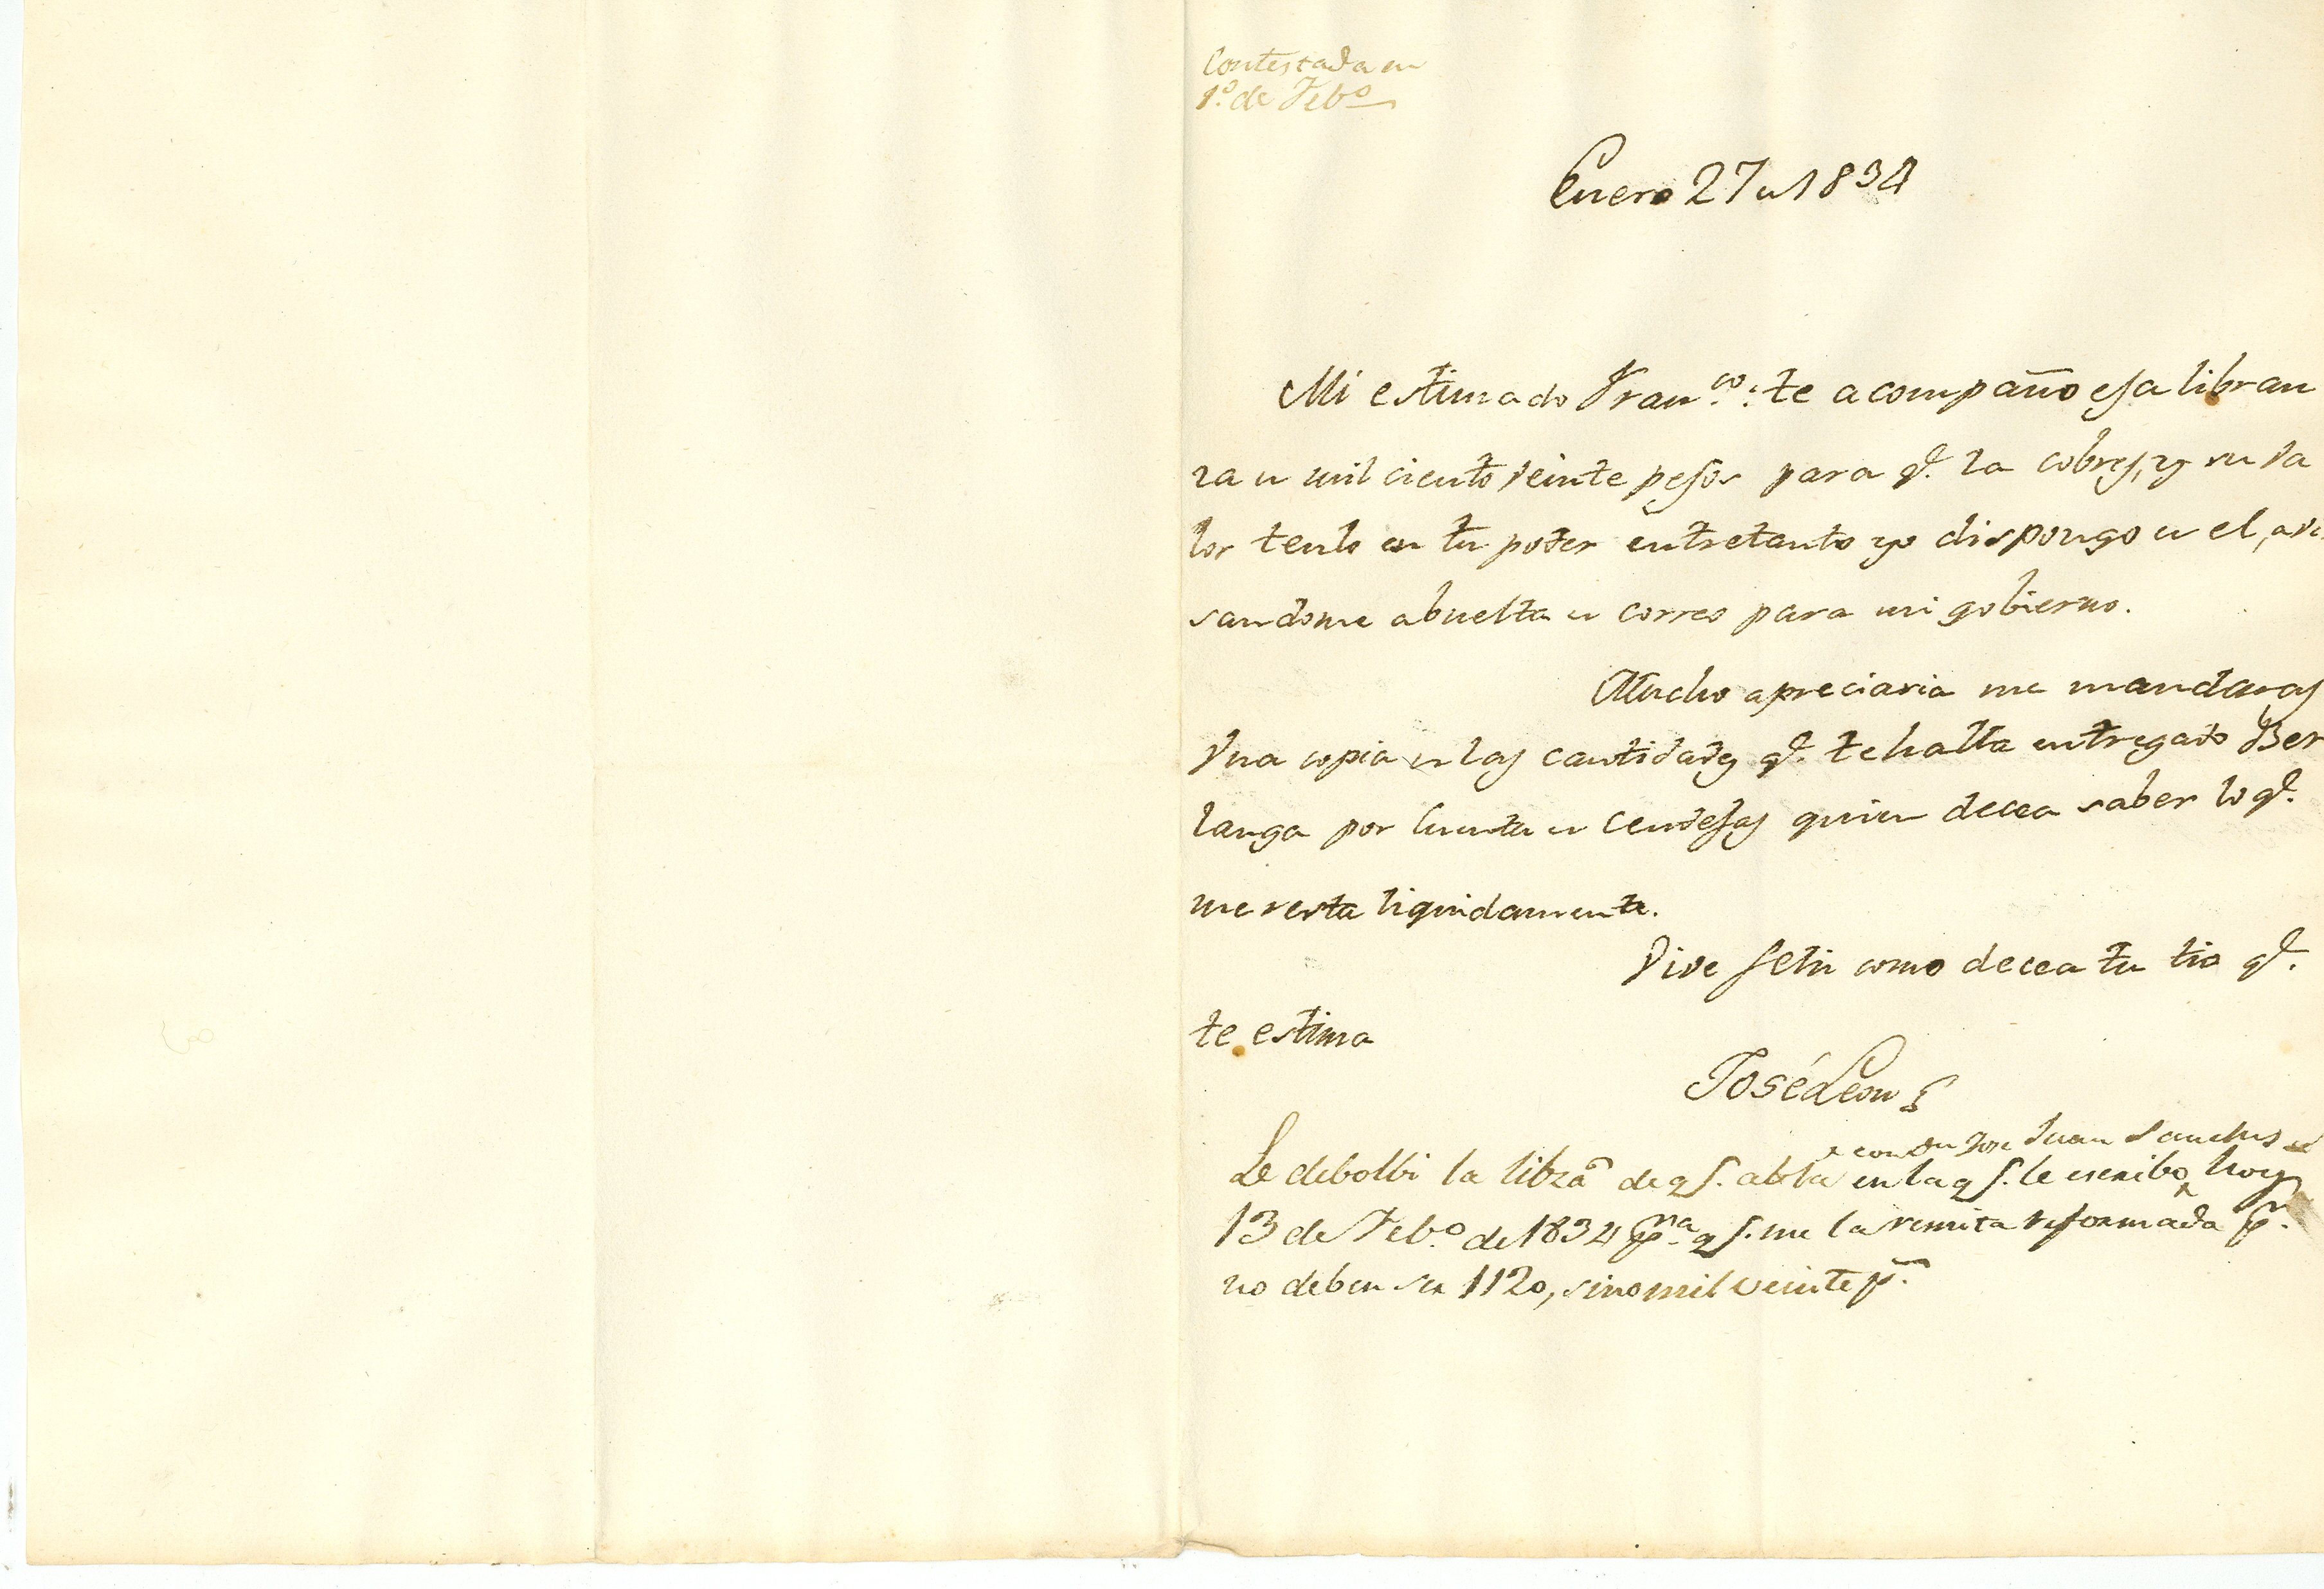 Contestada en
1.º de Feb.º
Enero 27 de 1834
Mi estimado Fran.co: te acompaño esa libran
za de mil ciento veinte pesos para q.e la cobres, y su va
lor tenlo en tu poder entretanto yo dispongo de el, avi
sandome abuelta de correo para mi gobierno.
Mucho apreciaria me mandaras
Una copia de las cantidades q.e te halla entregado Ber
langa por Cuenta de Cendejas quien decea saber lo q.e
me resta liquidamente.
Vive feliz como decea tu tio q.e
te estima
José Leon
Juan Sanches
Le debolbi la libza de q.e abla en la q.e le escribo hoy
13 de Feb.º de 1834 p.ra q.e me la remita reformada p.r
no deben ser 1120, sino mil veinte p.s